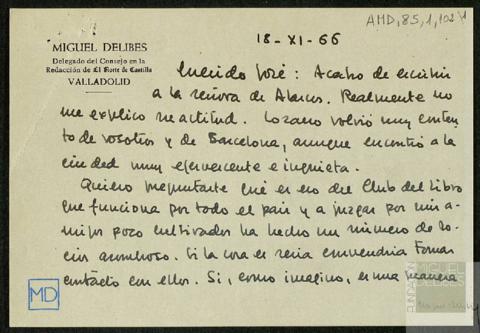 AMD, 85, 1, 102
MIGUEL DELIBES
Delegado del Consejo en la
Redacción de El Norte de Castilla
VALLADOLID
18-XI-66
Querido José: Acabo de escribir
a la señora de Alarcos. Realmente no
me explico su actitud. Lozano volvió muy conten-
to de vosotros y de Barcelona, aunque encontró a la
ciudad muy efervescente e inquieta.
Quiero preguntarte qué es eso del Club del Libro
que funciona por todo el país y a juzgar por mis a-
migos poco cultivados ha hecho un número de so-
cios asombroso. Si la cosa es seria convendría tomar
contacto con ellos. Si, como imagino, es una manera
MD
FUNDACIÓN
MIGUEL
DELIBES